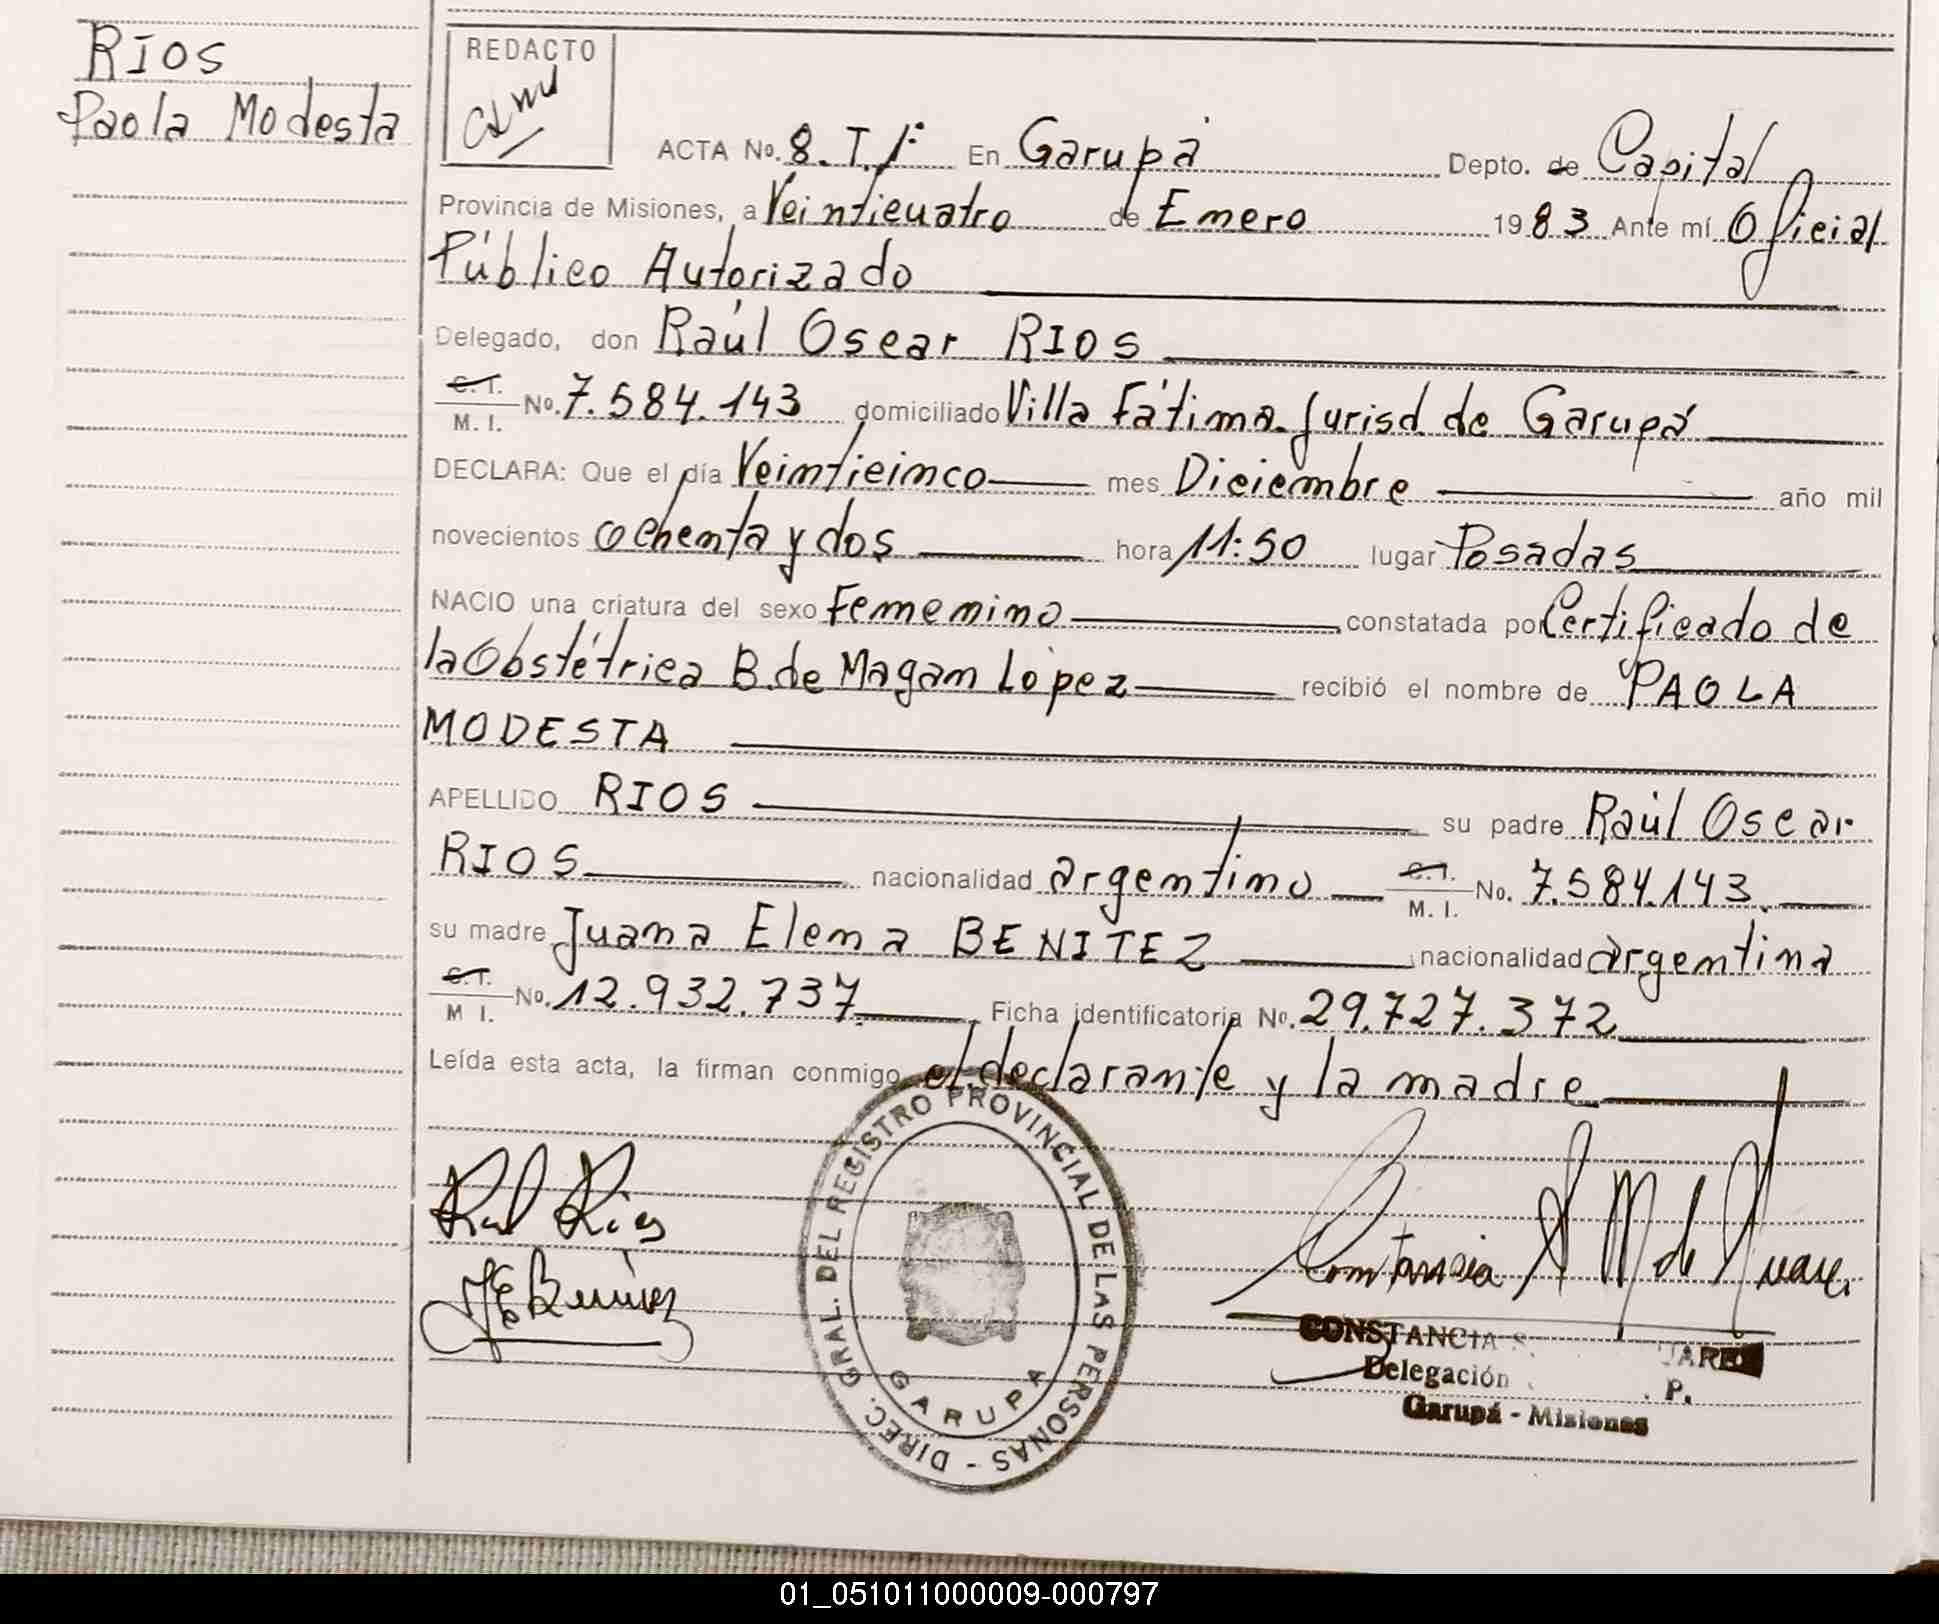 RIOS
Paola Modesta
REDACTO
ACTA No. 8. T. 1º En Garupá Depto. de Capital
Provincia de Misiones, a Veinticuatro de Enero 1983 Ante mí Oficial
Público Autorizado
Delegado, don Raúl Oscar RIOS
C.I. M. I. No. 7.584.143 domiciliado Villa Fátima. Jurisd de Garupá
DECLARA: Que el día Veinticinco mes Diciembre año mil
novecientos ochenta y dos hora 11:50 lugar Posadas
NACIO una criatura del sexo Femenino constatada por Certificado de
la Obstétrica B. de Magam López recibió el nombre de PAOLA
MODESTA
APELLIDO RIOS su padre Raúl Oscar
RIOS nacionalidad argentino C.I. M. I. No. 7.584.143.
su madre Juana Elena BENITEZ nacionalidad argentina
C.I. M I. No. 12.932.737. Ficha identificatoria No. 29.727.372
Leída esta acta, la firman conmigo el declarante y la madre
DIREC. GRAL. DEL REGISTRO PROVINCIAL DE LAS PERSONAS -
GARUPA
Raul Rios
JEBenitez
Constancia S M de Juarez
CONSTANCIA S. JAREZ
Delegación P.
Garupá - Misiones
01_051011000009-000797